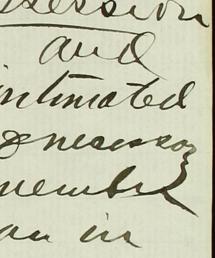 session
and
intimated
necessary
member
in